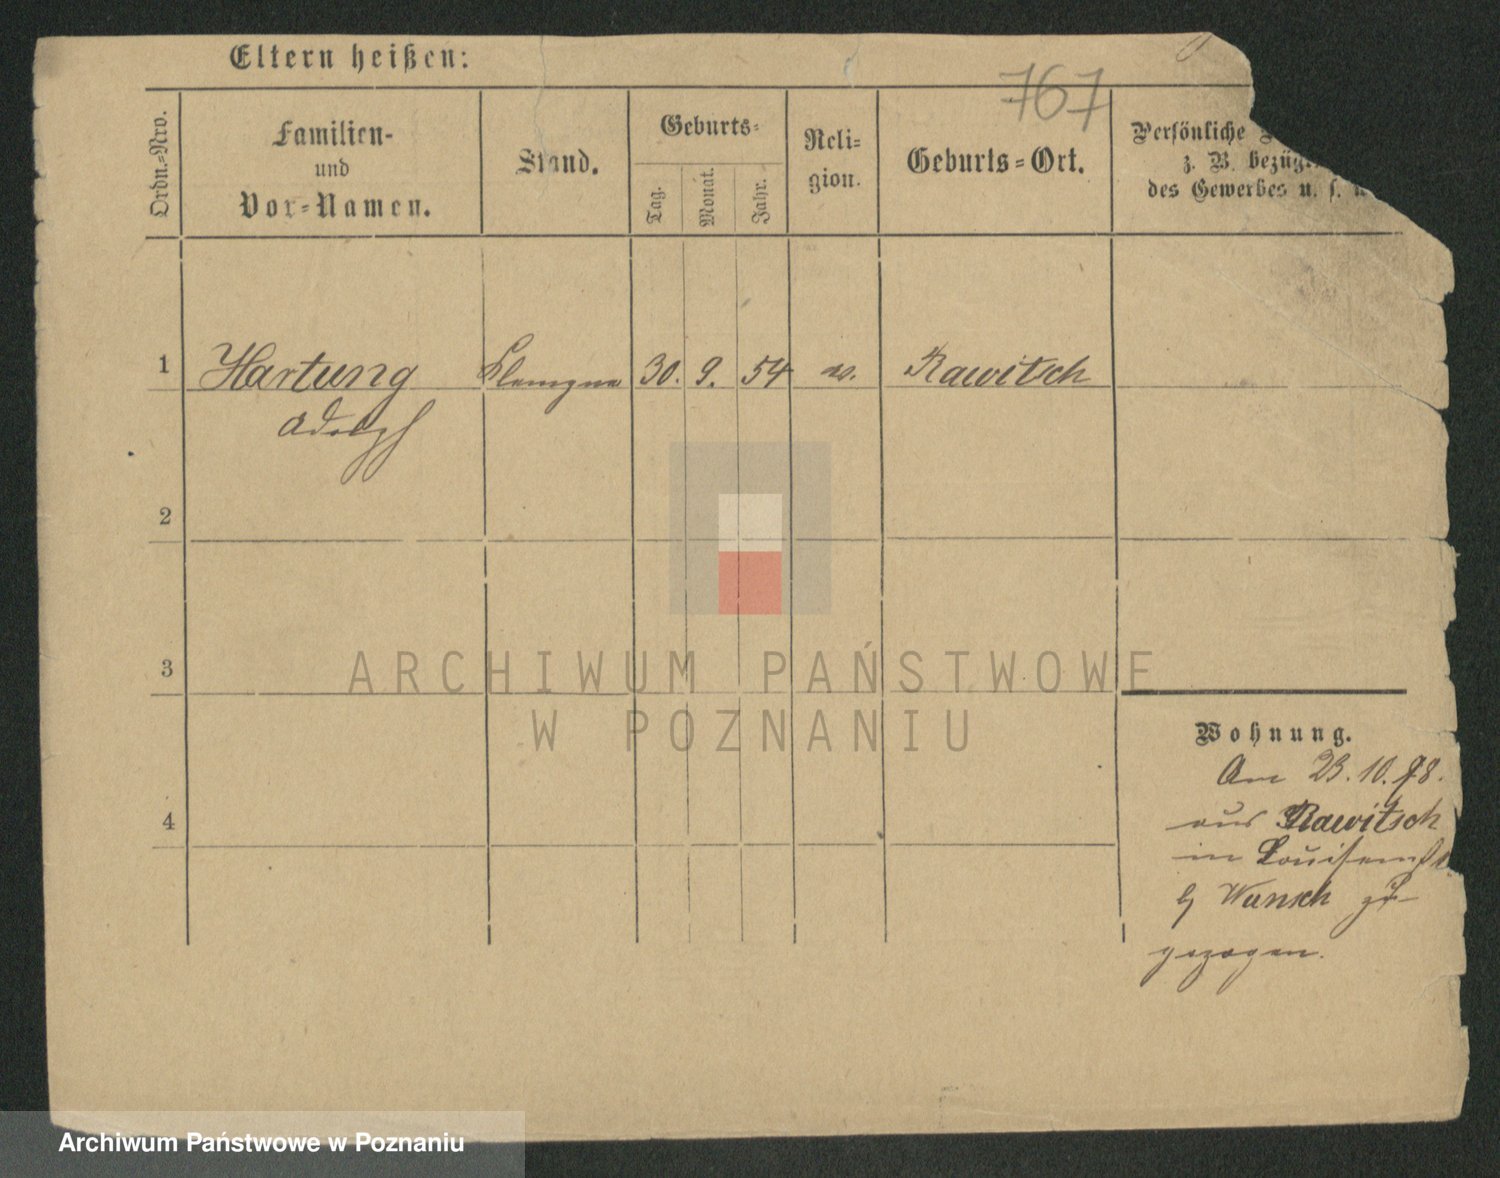 Eltern heißen:
767
Ordn.-Nro.
Familien-
und
Vor-Namen.
Stand.
Geburts-
Tag.
Monat.
Jahr.
Reli-
gion.
Geburts-Ort.
Persönliche
z. B. bezügl.
des Gewerbes u. s. w
1 Hartung 30. 9. 54 Rawitsch
Adolph
2
3
4
ARCHIWUM PAŃSTWOWE
W POZNANIU
Wohnung.
Am 23. 10. 78.
aus Rawitsch
in Louisenst
Wunsch zu-
gezogen.
Archiwum Państwowe w Poznaniu